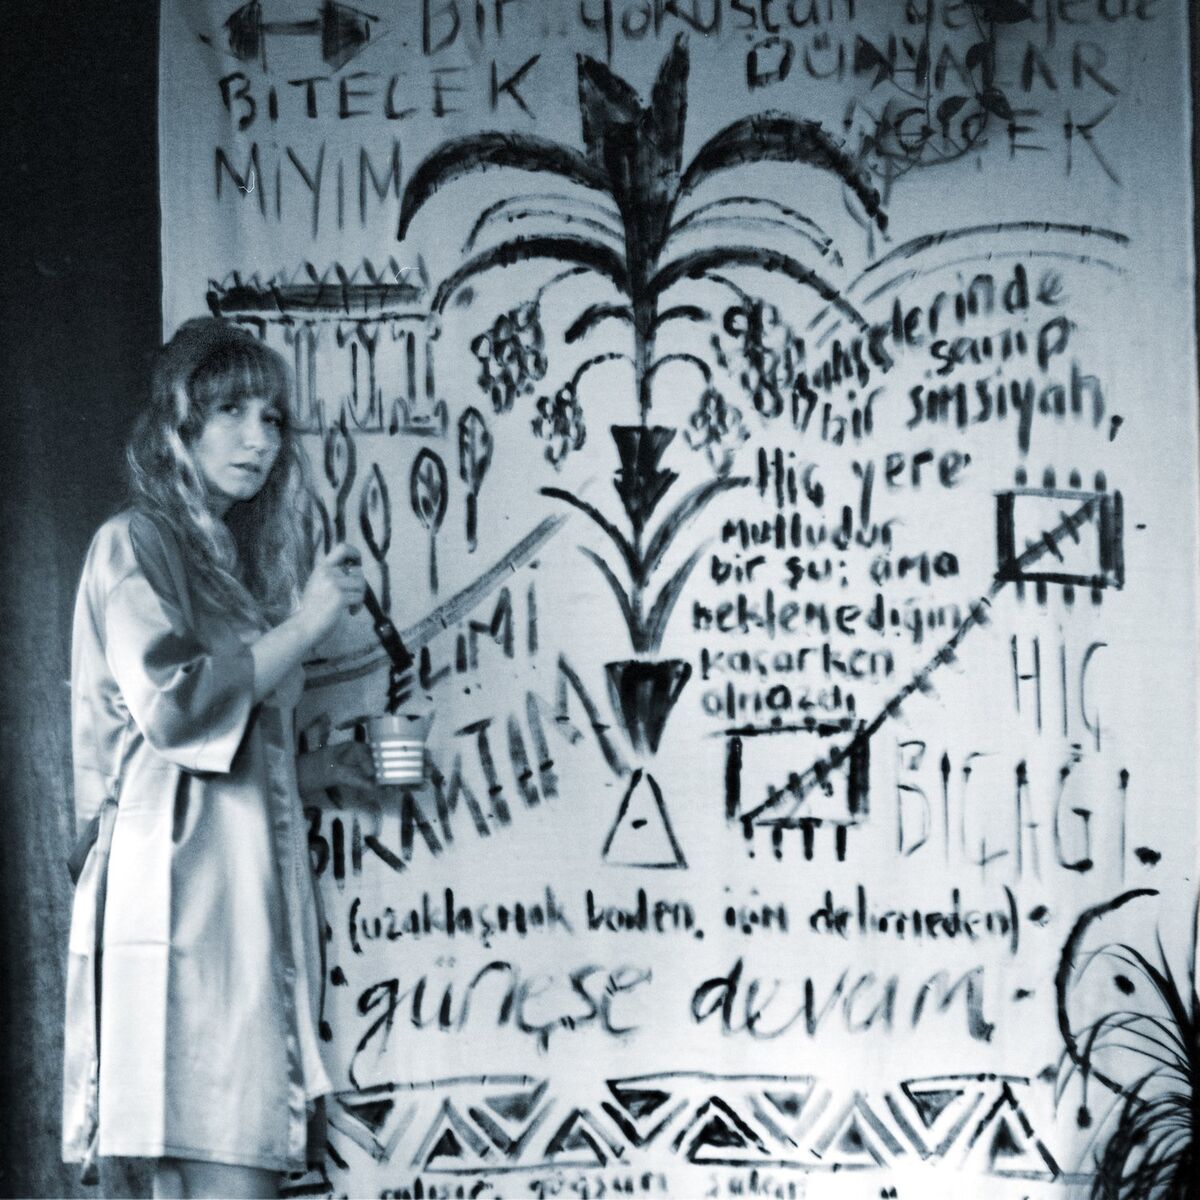 Bir yokuştan
BİTECEK
MİYİM
DÜNYALAR
GEÇEK
sanıp
bir simsiyah,
Hiç yere
mutludur
bir şu; ama
beklemediğin
kaçarken
olmazdı
ELİMİ
BIRAKTIM
HİÇ
BIÇAĞI.
(uzaklaşmak benden, için delirmeden)
güneşe devam